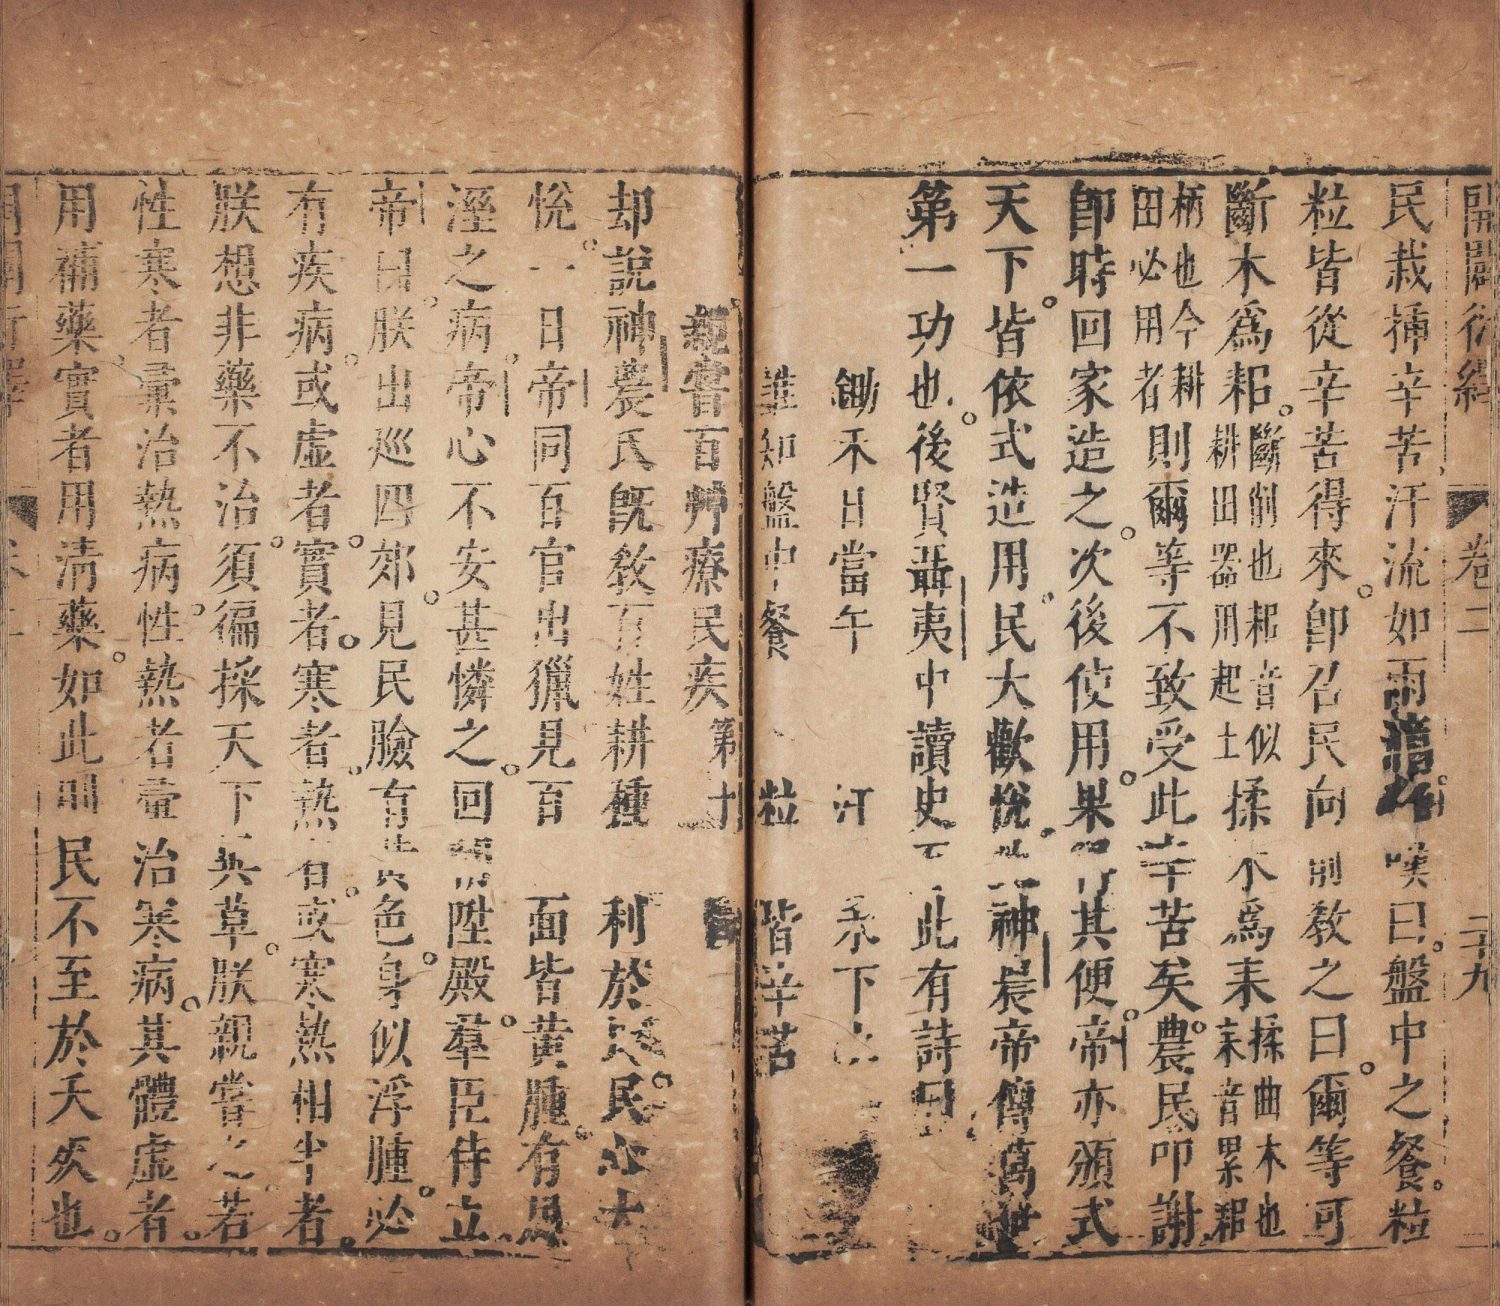 開闢衍繹 卷二 二十九
民栽揷辛苦汗流如雨嘆曰盤中之餐粒
粒皆從辛苦得來卽召民向前教之曰爾等可
斷木爲耜斷削也耜音似耕田器用起土揉木爲耒揉曲木也耒音累耜
柄也今耕田必用者則爾等不致受此辛苦矣農民叩謝
卽時回家造之次後使用果得其便帝亦頒式
天下皆依式造用民大歡悅神農帝傳萬世
第一功也後賢聶夷中讀史至此有詩曰
鋤禾日當午 汗 禾下
誰知盤中餐 粒 皆辛苦
親嘗百艸療民疾第十
却說神農氏旣敎百姓耕種 利於民民心大
悅一日帝同百官出獵見百 面皆黃腫有
溼之病帝心不安甚憐之回 陞殿羣臣侍立
帝曰朕出巡四郊見民臉有 色身似浮腫必
有疾病或虛者實者寒者熱者或寒熱相半者
朕想非藥不治須徧採天下 草朕親嘗之若
性寒者彙治熱病性熱者彙治寒病其體虛者
用補藥實者用淸藥如此則民不至於夭疾也